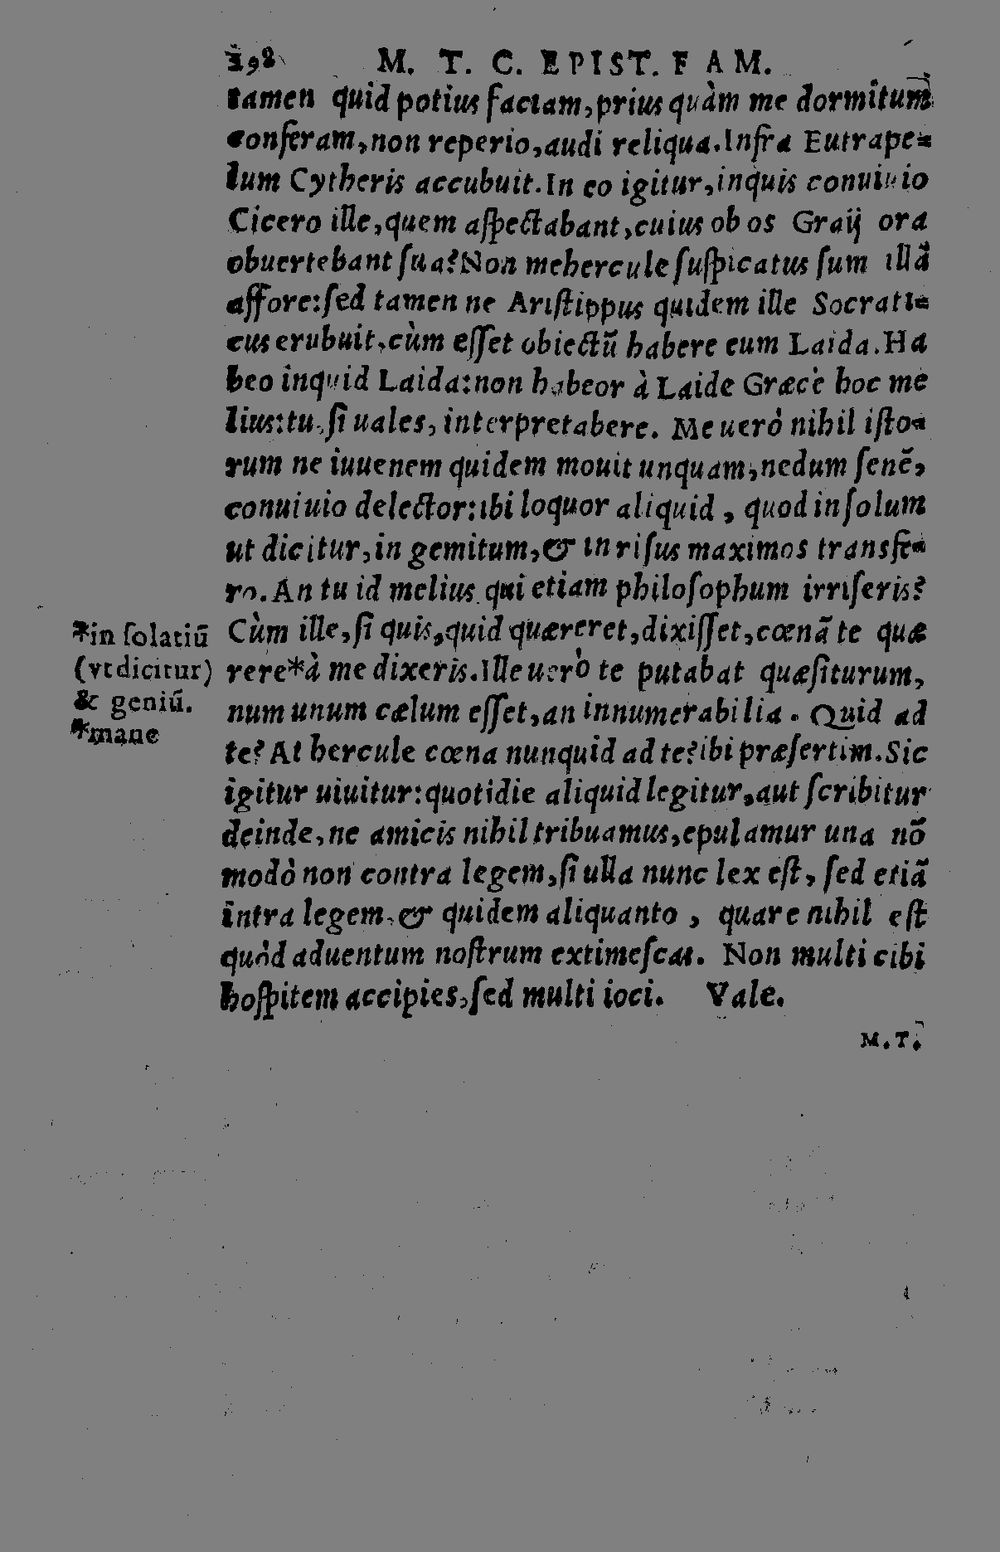 298 M. T. C. EPIST. FAM.
tamen quid potius faciam, prius quàm me dormitum
conferam, non reperio, audi reliqua. Infra Eutrape-
lum Cytheris accubuit. In eo igitur, inquis conuiuio
Cicero ille, quem aſpectabant, cuius ob os Graij ora
obuertebant ſua? Non mehercule ſuſpicatus ſum illã
affore: ſed tamen ne Ariſtippus quidem ille Socrati-
cus erubuit, cùm eſſet obiectũ habere eum Laida. Ha
beo inquid Laida: non habeor à Laide Græcè hoc me
lius: tu, ſi uales, interpretabere. Me uerò nihil iſto-
rum ne iuuenem quidem mouit unquam, nedum ſenẽ,
conuiuio delector: ibi loquor aliquid, quod in ſolum
ut dicitur, in gemitum, & in riſus maximos transfe-
ro. An tu id melius qui etiam philoſophum irriſeris?
Cùm ille, ſi quis, quid quæreret, dixiſſet, cœnã te quæ
rere* à me dixeris. Ille uerò te putabat quæſiturum,
num unum cælum eſſet, an innumerabilia. Quid ad
te? At hercule cœna nunquid ad te? ibi præſertim. Sic
igitur uiuitur: quotidie aliquid legitur, aut ſcribitur
deinde, ne amicis nihil tribuamus, epulamur una nõ
modò non contra legem, ſi ulla nunc lex eſt, ſed etiã
intra legem, & quidem aliquanto, quare nihil eſt
quòd aduentum noſtrum extimeſcas. Non multi cibi
hoſpitem accipies, ſed multi ioci. Vale.
M. T.
*in ſolatiũ
(vt dicitur)
& geniũ.
*mane